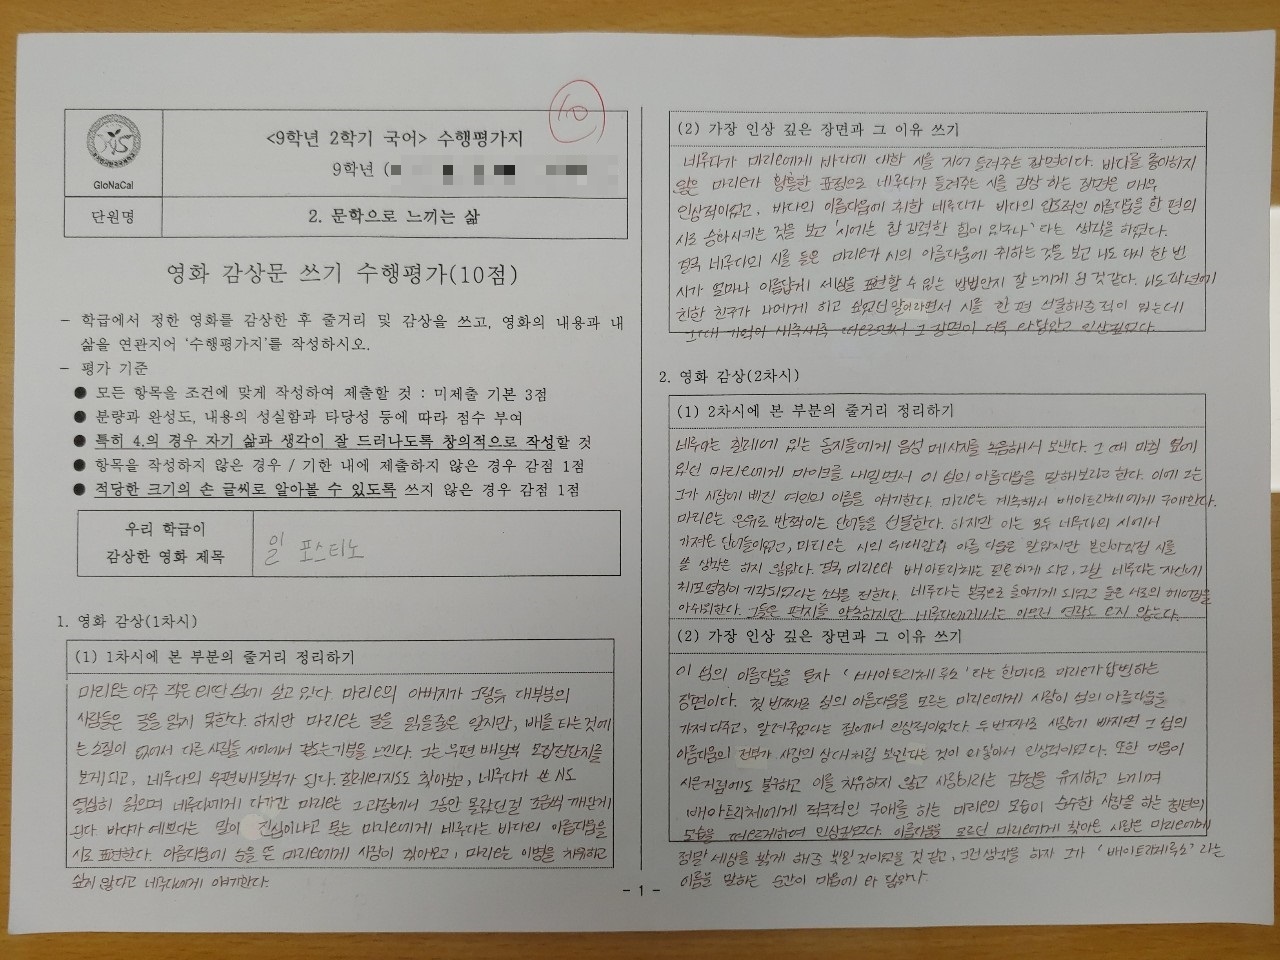 10
GloNaCal
<9학년 2학기 국어> 수행평가지
9학년 (
단원명
2. 문학으로 느끼는 삶
영화 감상문 쓰기 수행평가(10점)
- 학급에서 정한 영화를 감상한 후 줄거리 및 감상을 쓰고, 영화의 내용과 내
삶을 연관지어 ‘수행평가지’를 작성하시오.
- 평가 기준
● 모든 항목을 조건에 맞게 작성하여 제출할 것 : 미제출 기본 3점
● 분량과 완성도, 내용의 성실함과 타당성 등에 따라 점수 부여
● 특히 4.의 경우 자기 삶과 생각이 잘 드러나도록 창의적으로 작성할 것
● 항목을 작성하지 않은 경우 / 기한 내에 제출하지 않은 경우 감점 1점
● 적당한 크기의 손 글씨로 알아볼 수 있도록 쓰지 않은 경우 감점 1점
우리 학급이
감상한 영화 제목
일 포스티노
1. 영화 감상(1차시)
(1) 1차시에 본 부분의 줄거리 정리하기
마리오는 아주 작은 외딴 섬에 살고 있다. 마리오의 아버지가 그렇듯 대부분의
사람들은 글을 읽지 못한다. 하지만 마리오는 글을 읽을줄은 알지만, 배를 타는것에
는 소질이 없어서 다른 사람들 사이에서 겉도는기분을 느낀다. 그는 우편 배달부 모집전단지를
보게되고, 네루다의 우편배달부가 된다. 찾아보고, 네루다가 쓴 시도
열심히 읽으며 네루다에게 다가간 마리오는 그 과정에서 그동안 몰랐던걸 조금씩 깨닫게
된다. 바다가 예쁘다는 말이 진심이냐고 묻는 마리오에게 네루다는 바다의 아름다움을
시로 표현한다. 아름다움에 눈을 뜬 마리오에게 사랑이 찾아오고, 마리오는 이병을 치유하고
싶지 않다고 네루다에게 얘기한다.
(2) 가장 인상 깊은 장면과 그 이유 쓰기
네루다가 마리오에게 바다에 대한 시를 지어 들려주는 장면이다. 바다를 좋아하지
않은 마리오가 황홀한 표정으로 네루다가 들려주는 시를 감상 하는 장면은 매우
인상적이었고, 바다의 아름다움에 취한 네루다가 바다의 입체적인 아름다움을 한 편의
시로 승화시키는 것을 보고 '시에는 참 강력한 힘이 있구나' 라는 생각을 하였다.
결국 네루다의 시를 들은 마리오가 시의 아름다움에 취하는 것을 보고 나도 다시 한 번
시가 얼마나 아름답게 세상을 표현할 수 있는 방법인지 잘 느끼게 된 것같다. 나도 작년에
친한 친구가 나에게 하고 싶었던 말이라면서 시를 한 편 선물해준적이 있는데
그때 기억이 새록새록 떠오르면서 그 장면이 더욱 와닿았고 인상깊었다.
2. 영화 감상(2차시)
(1) 2차시에 본 부분의 줄거리 정리하기
네루다는 칠레에 있는 동지들에게 음성 메시지를 녹음해서 보낸다. 그 때 마침 옆에
있던 마리오에게 마이크를 내밀면서 이 섬의 아름다움을 말해보라고 한다. 이에 그는
그가 사랑에 빠진 여인의 이름을 얘기한다. 마리오는 계속해서 베아트리체에게 구애한다.
마리오는 은유로 반짝이는 단어들을 선물한다. 하지만 이는 모두 네루다의 시에서
가져온 단어들이었고, 마리오는 시의 위대함과 아름다움은 알았지만 본인이직접 시를
쓸 생각은 하지 않았다. 결국 마리오와 베아트리체는 결혼하게 되고, 그날 네루다는 자신에게
체포영장이 기각되었다는 소식을 전한다. 네루다는 본국으로 돌아가게 되었고 둘은 서로의 헤어짐을
아쉬워한다. 그들은 편지를 약속하지만 네루다에게서는 아무런 연락도 오지 않는다.
(2) 가장 인상 깊은 장면과 그 이유 쓰기
이 섬의 아름다움을 묻자 '베아트리체 루소'라는 한마디로 마리오가 답변하는
장면이다. 첫 번째로 섬의 아름다움을 모르는 마리오에게 사랑이 섬의 아름다움을
가져다주고, 알려주었다는 점에서 인상적이었다. 두 번째로 사랑에 빠지면 그 섬의
아름다움의 전부가 사랑의 상대처럼 보인다는 것이 와닿아서 인상적이었다. 또한 마음이
시큰거림에도 불구하고 이를 치유하지 않고 사랑이라는 감정을 유지하고 느끼며
베아트리체에게 적극적인 구애를 하는 마리오의 모습이 순수한 사랑을 하는 청년의
모습을 떠오르게하여 인상깊었다. 아름다움을 모르던 마리오에게 찾아온 사랑은 마리오에게
정말 세상을 밝게 해준 빛일 것이었을 것 같고, 그런 생각을 하자 그가 '베아트리체루소' 라는
이름을 말하는 순간이 마음에 와 닿았다.
- 1 -